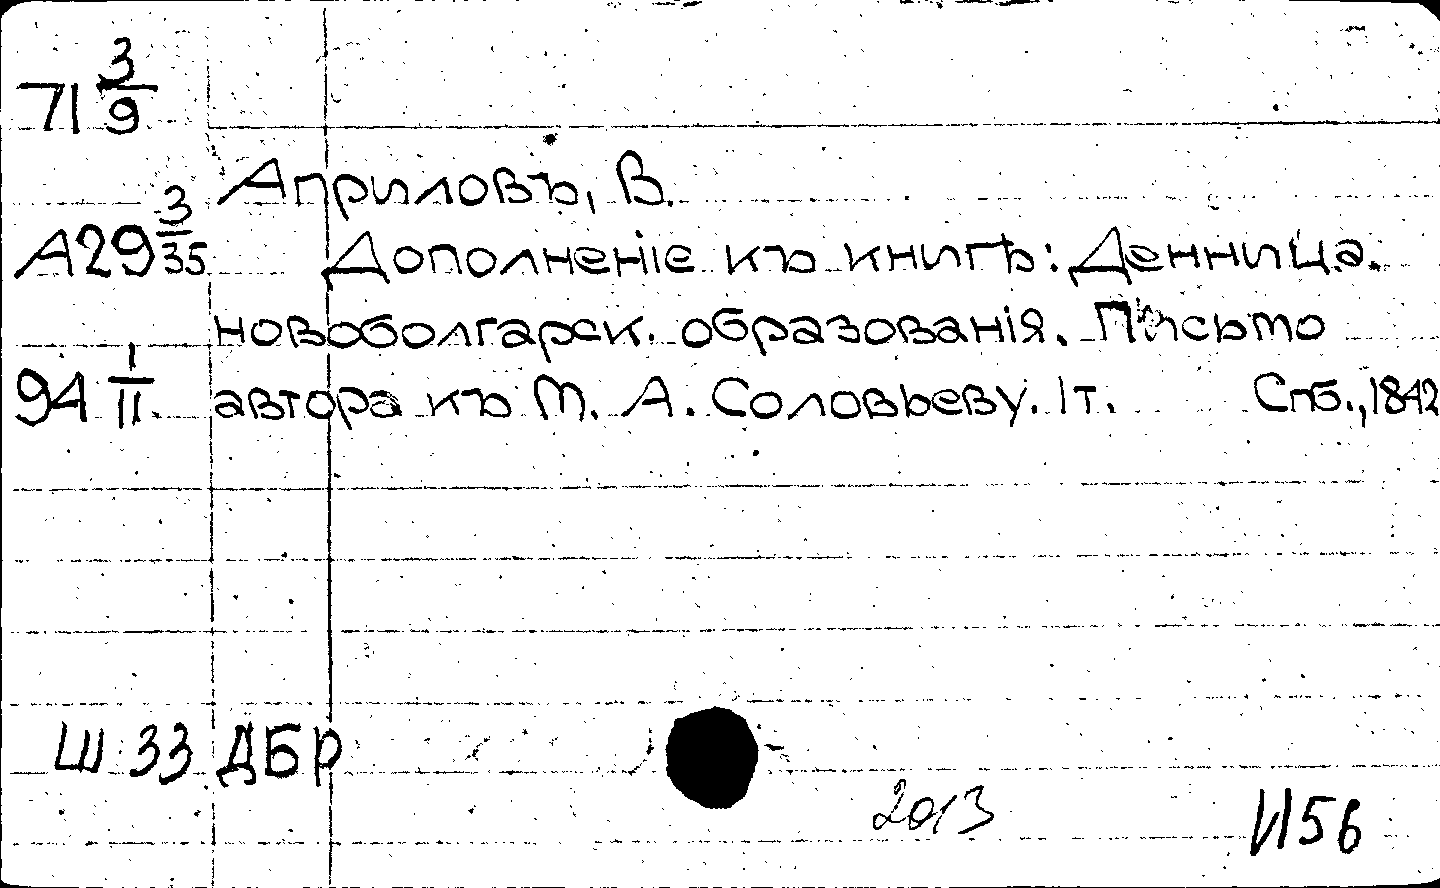 71 3/9
Априловъ, В.
А29 3/35 Дополненіе къ книгѣ: Денница.
новоболгарск. образованія. Письмо
94 I/II автора къ М. А. Соловьеву. 1т. Спб., 1842
Ш 33 ДБР
2013
И56